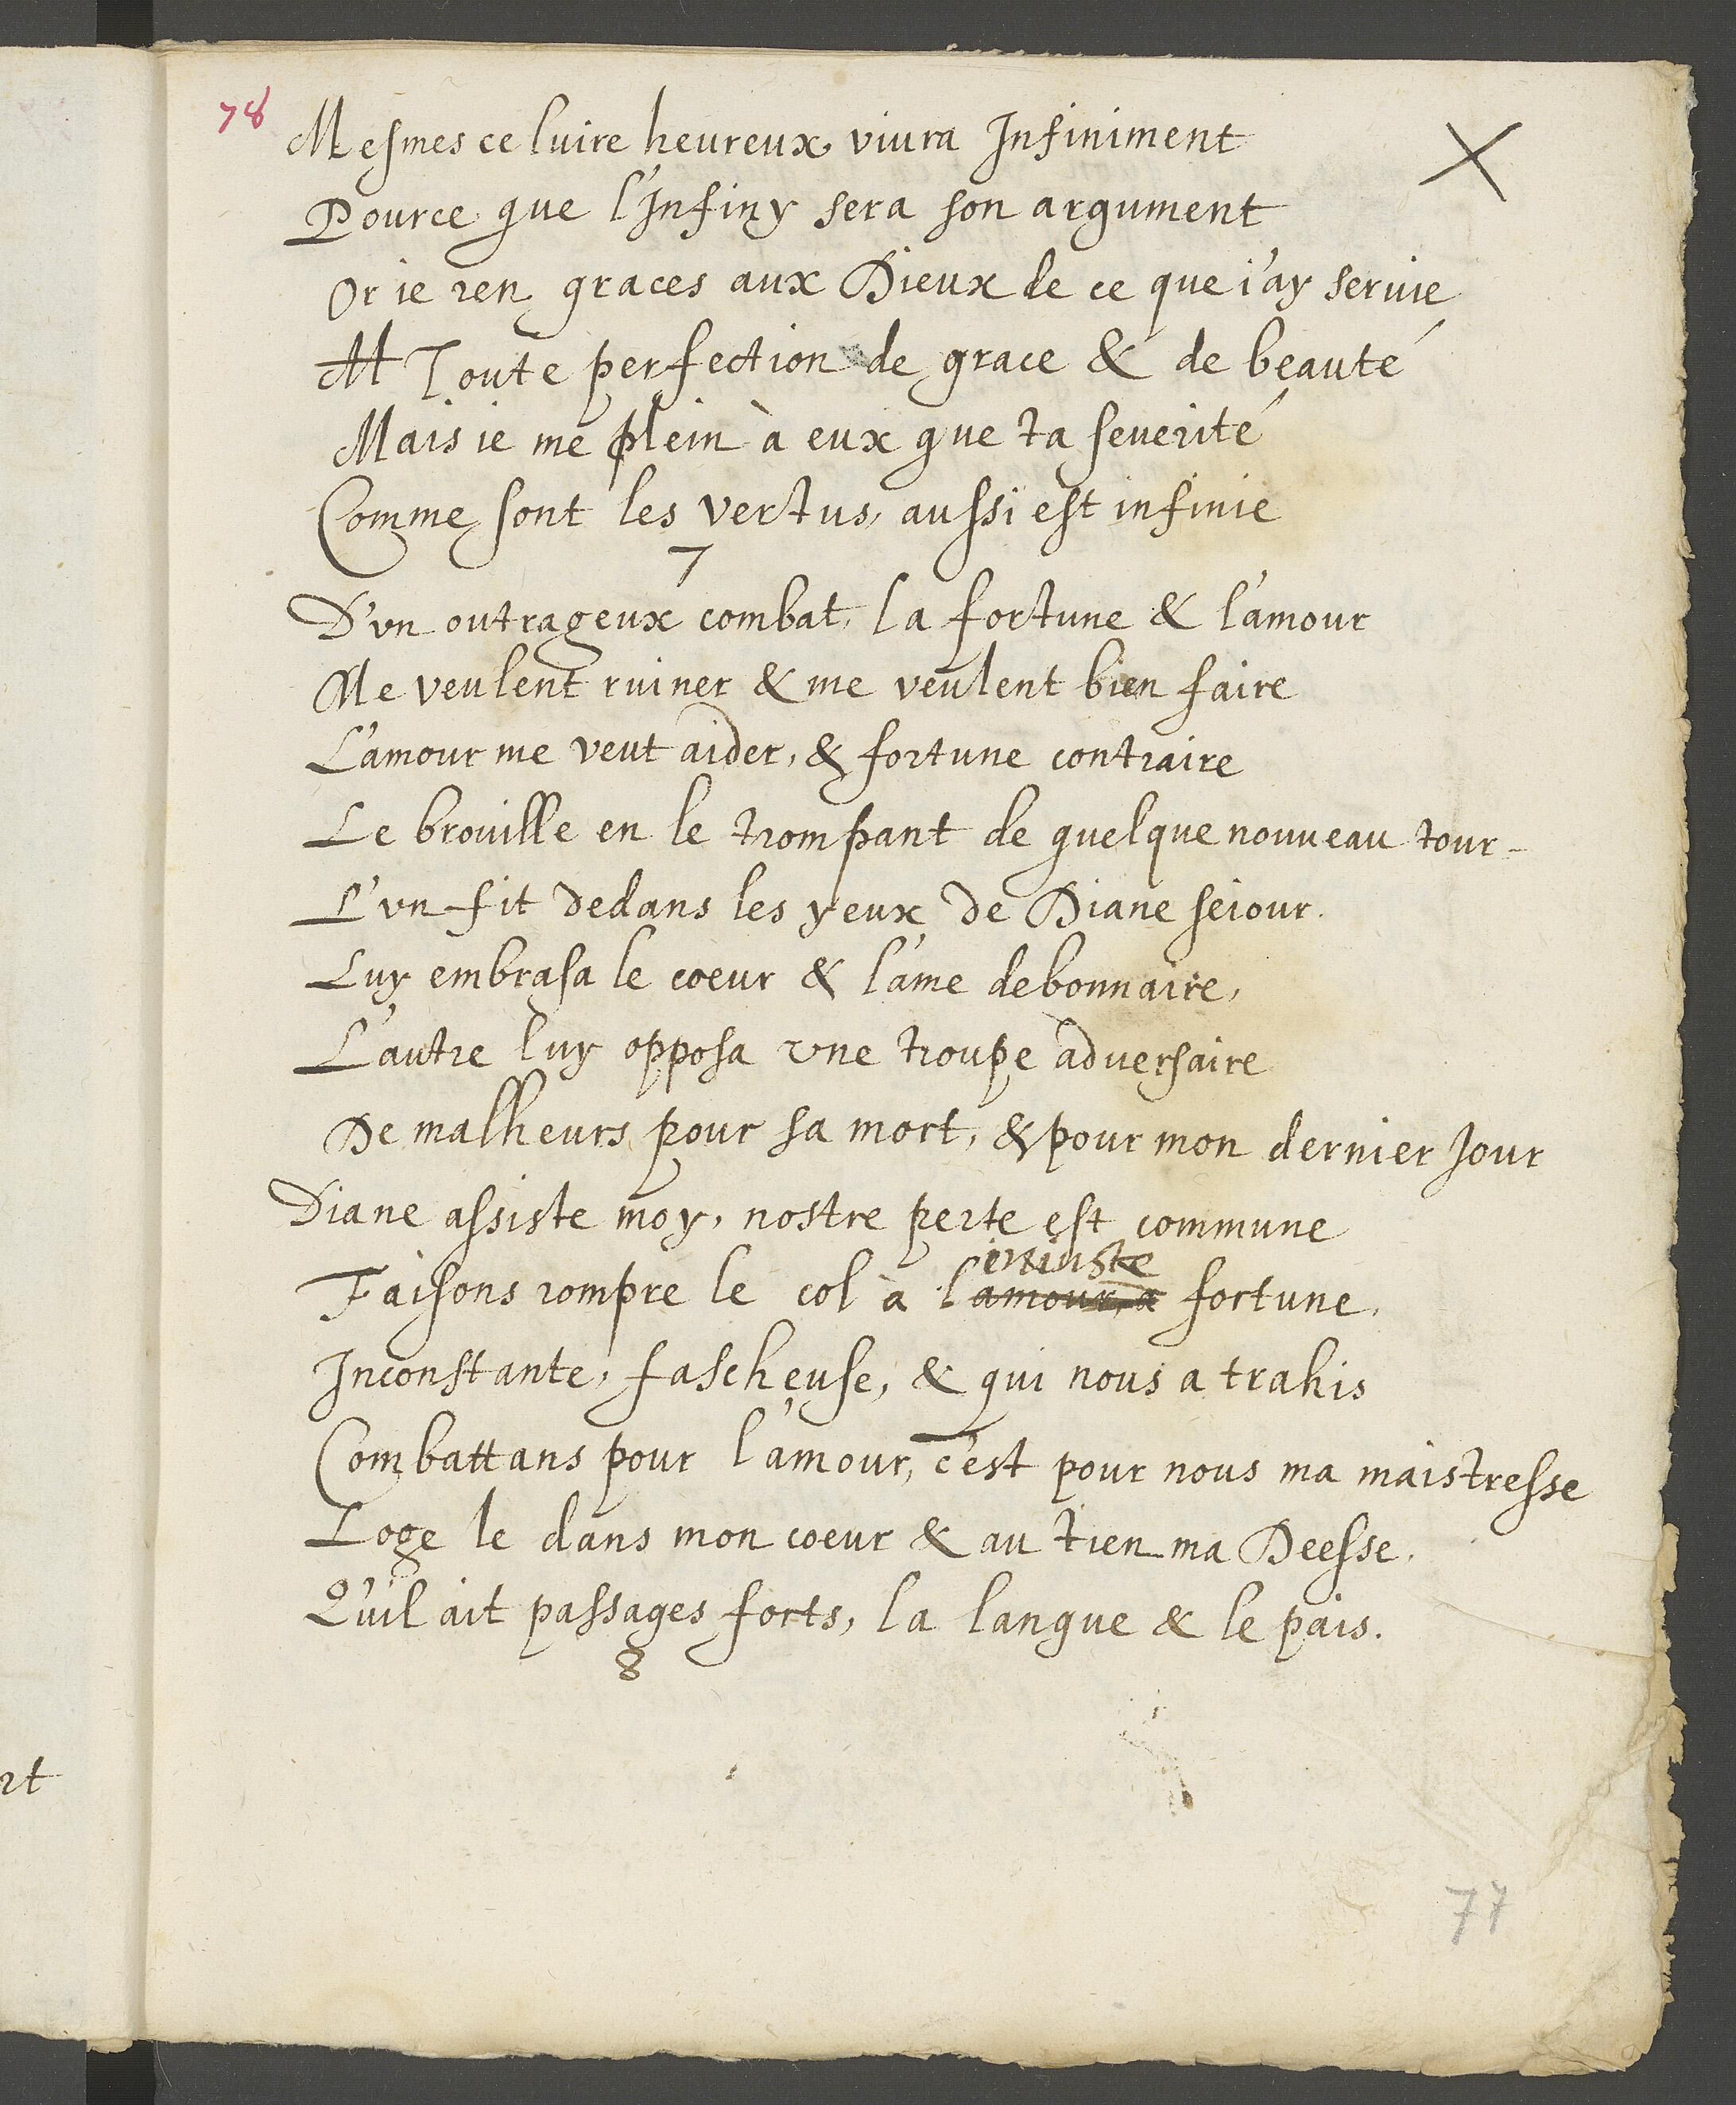 78
Mesmes ce luire heureux viura Infiniment
Pource que l'Infiny sera son argument
Or ie ren graces aux Dieux de ce que i'ay seruie
Toute perfection de grace & de beauté
Mais ie me plein à eux que ta seuerité
Comme sont les vertus, aussi est infinie
7
D'vn outrageux combat, la fortune & l'amour
Me veulent ruiner & me veulent bien faire
L'amour me veut aider, & fortune contraire
Le brouille en le trompant de quelque nouueau tour
L'vn fit dedans les yeux de Diane seiour.
Luy embrasa le coeur & l'ame debonnaire,
L'autre luy opposa vne troupe adversaire
De malheurs pour sa mort, & pour mon dernier Jour
Diane assiste moy, nostre perte est commune
iniuste
Faisons rompre le col à l'amour, à fortune,
Inconstante, fascheuse, & qui nous a trahis
Combattans pour l'amour, c'est pour nous ma maistresse
Loge le dans mon coeur & au tien ma Deesse.
Qu'il ait passages forts, la langue & le pais.
8
rt
77